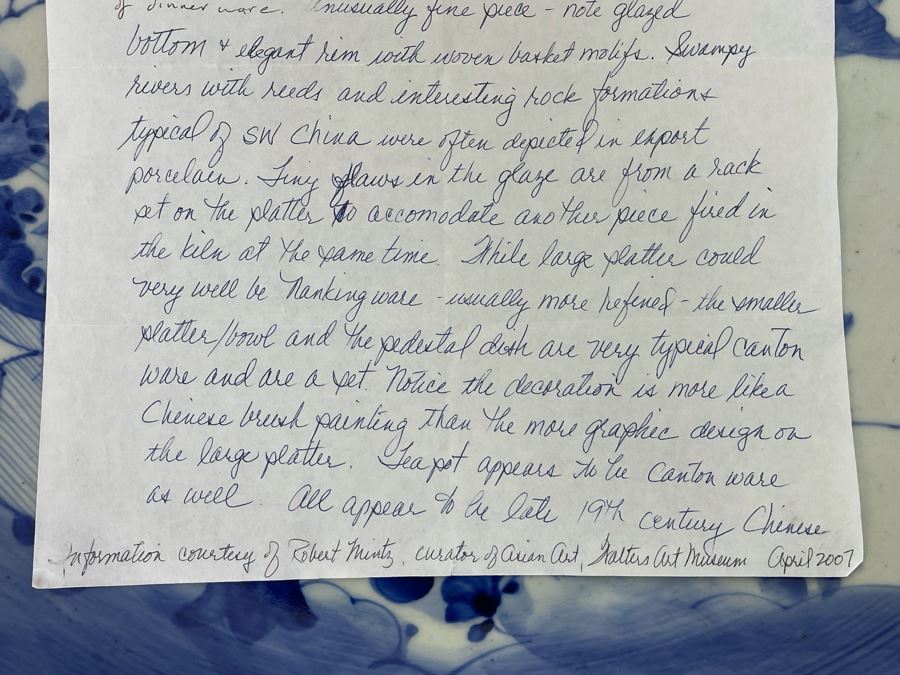 of dinnerware. Unusually fine piece - note glazed
bottom + elegant rim with woven basket motifs. Swampy
rivers with reeds and interesting rock formations
typical of SW China were often depicted in export
porcelain. Tiny flaws in the glaze are from a rack
set on the platter to accomodate another piece fired in
the kiln at the same time. While large platter could
very well be Nanking ware - usually more refined - the smaller
platter/bowl and the pedestal dish are very typical Canton
ware and are a set. Notice the decoration is more like a
Chinese brush painting than the more graphic design on
the large platter. Teapot appears to be Canton ware
as well. All appear to be late 19th century Chinese
Information courtesy of Robert Mintz, curator of Asian Art, Walters Art Museum April 2007